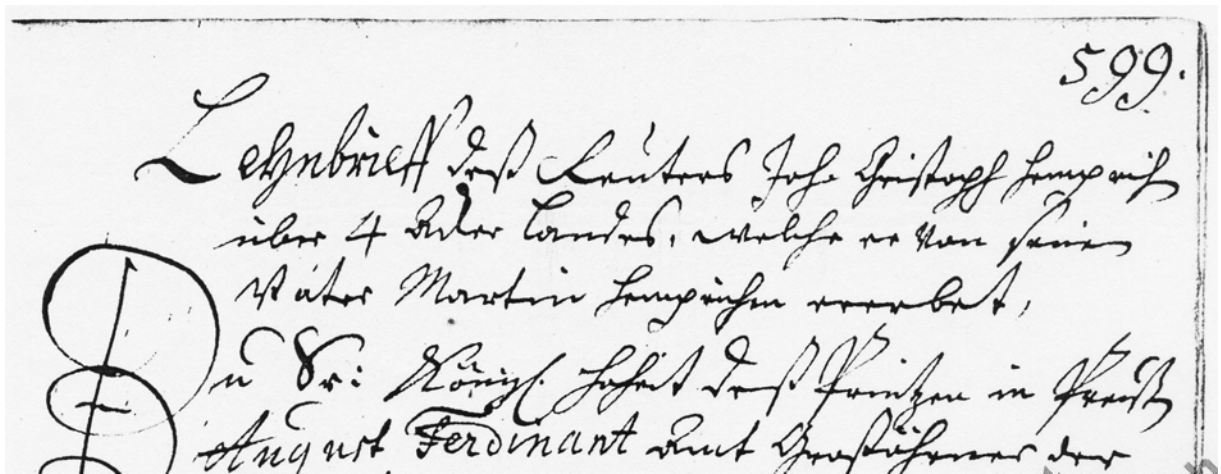 599.
Lehnbrieff deß Reuters Joh. Christoph Hemprich
über 4 Acker Landes, welche er von seinem
Vater Martin Hemprichen ererbet,
In Sr: Königl. Hoheit deß Printzen in Preuß
August Ferdinant Amt Großöhrner der